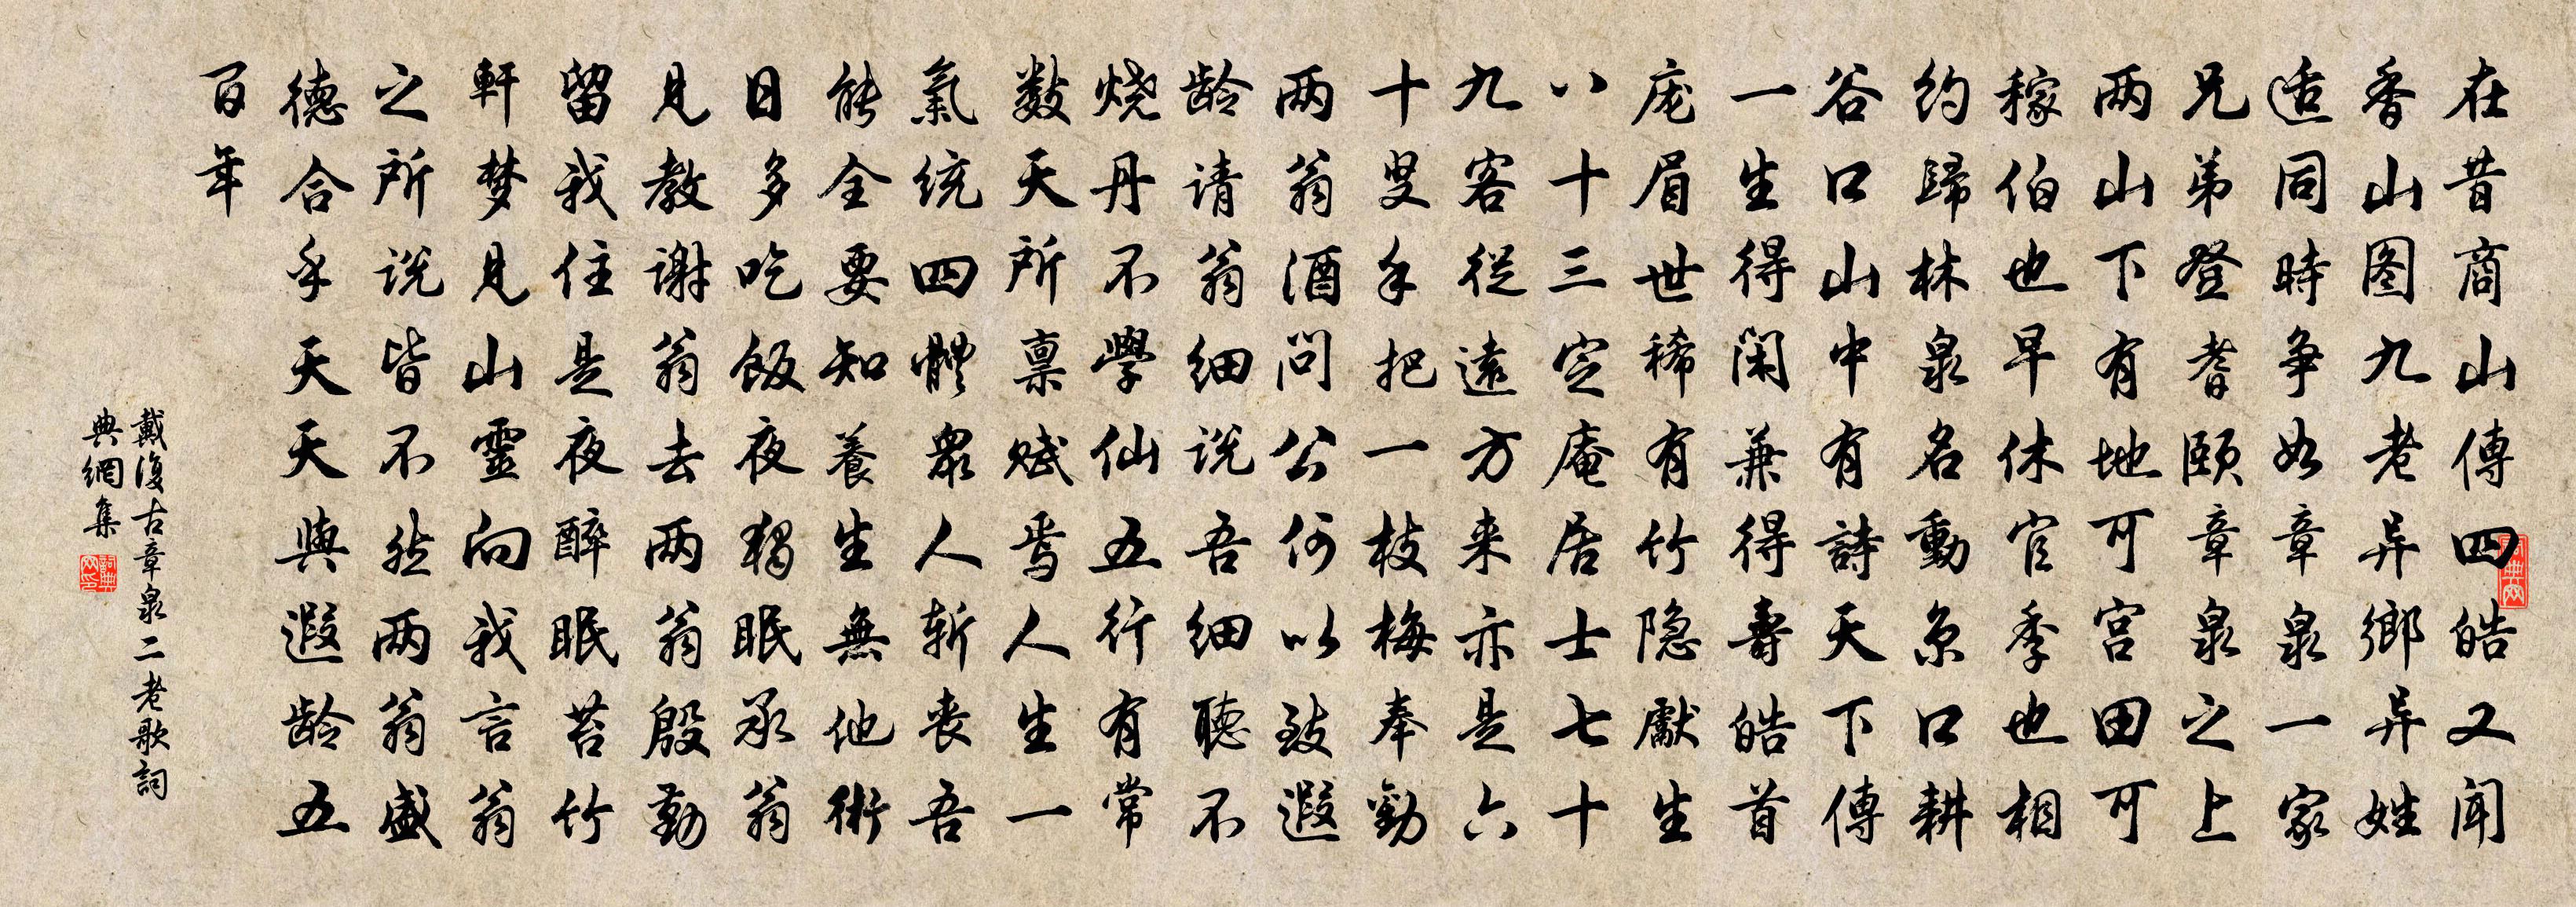 在昔商山傳四皓又闻
香山图九老异鄉异姓
适同時争如章泉一家
兄弟登耆颐章泉之上
两山下有地可宫田可
稼伯也早休官季也相
约歸林泉名動京口耕
谷口山中有詩天下傳
一生得闲兼得壽皓首
庞眉世稀有竹隐獻生
八十三定庵居士七十
九客從遠方来亦是六
十叟手把一枝梅奉勸
两翁酒问公何以致遐
龄请翁细说吾细聽不
烧丹不學仙五行有常
数天所禀赋焉人生一
氣统四體眾人斬丧吾
能全要知養生無他術
日多吃饭夜獨眠承翁
见教谢翁去两翁殷勤
留我住是夜醉眠苔竹
軒梦见山靈向我言翁
之所说皆不然两翁盛
德合乎天天與遐龄五
百年
戴復古章泉二老歌詞
典網集